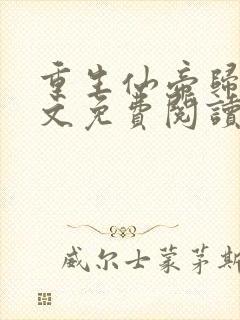 重生仙帝歸
文免費閱讀
威尔士蒙茅斯